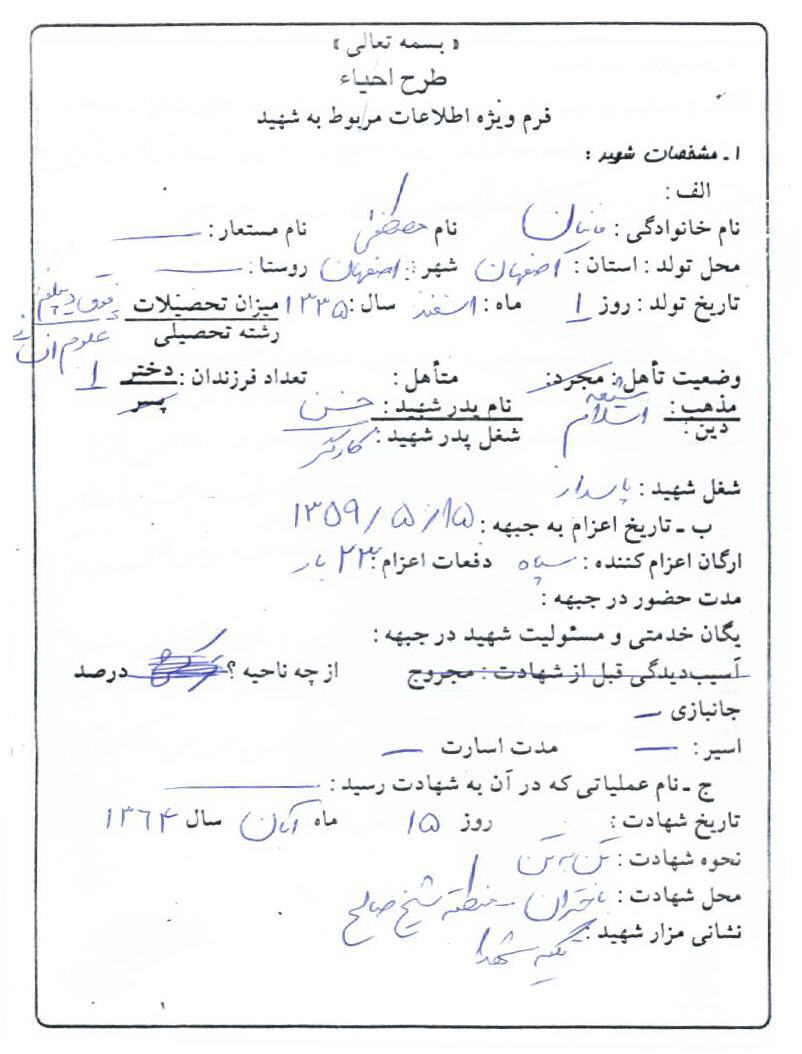 « بسمه تعالی »
طرح احیاء
فرم ویژه اطلاعات مربوط به شهید
۱ ـ مشخصات شهید :
الف :
نام خانوادگی : نام مصطفی نام مستعار : ــــ
محل تولد : استان : اصفهان شهر : اصفهان روستا : ــــ
تاریخ تولد : روز ۱ ماه : اسفند سال : ۱۳۳۵ میزان تحصیلات فوق دیپلم
رشته تحصیلی علوم انسانی
وضعیت تأهل : مجرد : متأهل : تعداد فرزندان : دختر ۱
پسر
مذهب : شیعه نام پدر شهید : حسن
دین : اسلام شغل پدر شهید : کارگر
شغل شهید : پاسدار
ب ـ تاریخ اعزام به جبهه : ۱۳۵۹/۵/۱۵
ارگان اعزام کننده : سپاه دفعات اعزام : ۲۳ بار
مدت حضور در جبهه :
یگان خدمتی و مسئولیت شهید در جبهه :
آسیب‌دیدگی قبل از شهادت : مجروح از چه ناحیه ؟ درصد
جانبازی ــ
اسیر : ــ مدت اسارت ــ
ج ـ نام عملیاتی که در آن به شهادت رسید : ــــ
تاریخ شهادت : روز ۱۵ ماه آبان سال ۱۳۶۴
نحوه شهادت : تن به تن
محل شهادت : باختران ـ منطقه شیخ صالح
نشانی مزار شهید : تکیه شهدا
۱